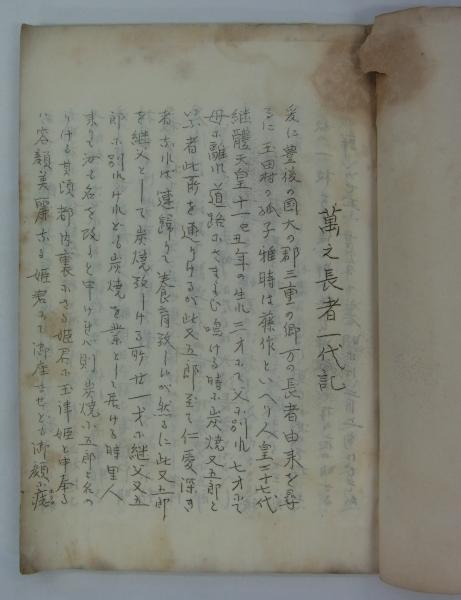 萬之長者一代記
爰に豊後の国大の郡三重の郷万の長者由来を尋
るに玉田村の孤子雅時は藤作といへり人皇二十七代
継體天皇十一乙丑年の生れ三才にて父に別れ七才にて
母に離れ道路にさまよひ鳴ける時に炭焼又五郎と
いふ者此所を通りけるが此又五郎至て仁愛深き
者なれば連帰りて養育致しいが然るに此又五郎
を継父として炭焼致しける所廿一才に継父又五
郎に別れけれども炭焼を業として居ける時里人
来りて汝も名を改よと申ければ則炭焼小五郎と名の
りける其頃都内裏にさる姫君に玉津姫と申奉る
は容顔美麗なる姫君にて御座ませども御顔に痣